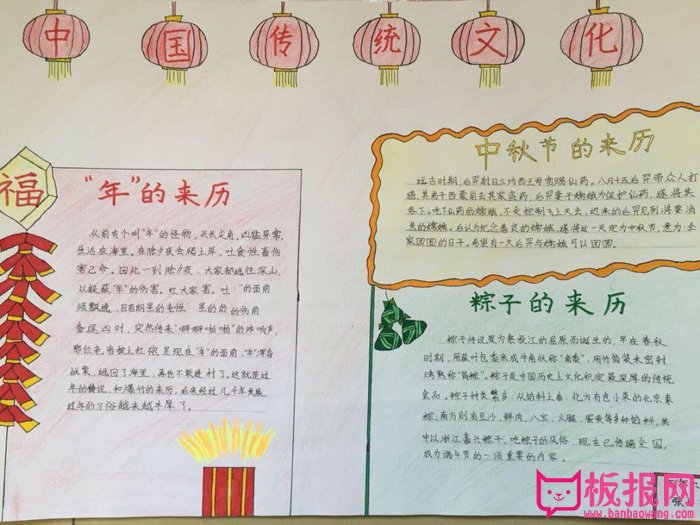 中国传统文化
福
"年"的来历
从前有个叫"年"的怪物,头长尖角,凶猛异常,
生活在海里,在除夕夜会爬上岸,吐食牲畜伤
害己命。因此一到除夕夜,大家都逃往深山,
以躲蔽"年"的伤害。
的面前
突然传来"噼噼啪啪"的炸响声,
"年"浑身
战栗,逃回了海里,再也不敢进村了。这就是过
年的传说,和爆竹的来历,后来经过几千年发展,
过年的习俗越来越丰厚了。
中秋节的来历
远古时期,后羿射日立功西王母密赐仙药。八月十五后羿带众人打
猎,其弟子西蒙前去其家盗药,后羿妻子嫦娥为保护仙药,遂将其
吞下。吃下仙药的嫦娥,不受控制飞上天去,迟来的后羿见到将要消
失的嫦娥,后认为纪念善良的嫦娥,遂将这一天定为中秋节,意为全
家团圆的日子。希望有一天后羿与嫦娥可以团圆。
粽子的来历
粽子传说是为祭投江的屈原而诞生的,早在春秋
时期,用菰叶包黍米成牛角状称"角黍",用竹筒装米密封
烤熟称"筒粽"。粽子是中国历史上文化积淀最深厚的传统
食品。粽子种类繁多,从馅料上看,北方有包小枣的北京枣
粽,南方则有豆沙、鲜肉、八宝、火腿、蛋黄等多种馅料,其
中以浙江嘉兴粽子,吃粽子的风俗,现在已传遍全国,
成为端午节的一项重要的内容。
板报网
www.banbaowang.com